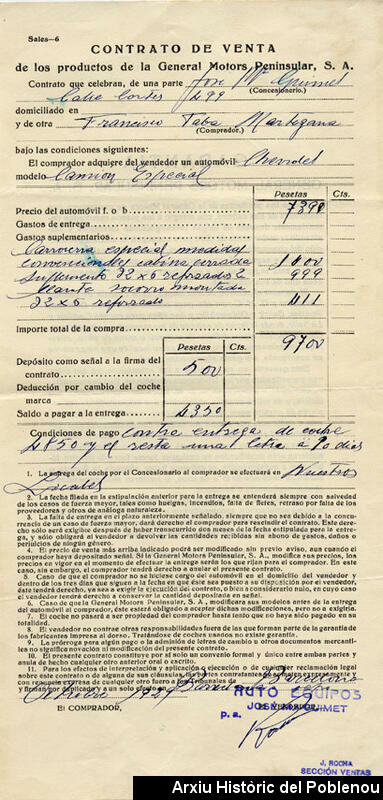 Sales—6
CONTRATO DE VENTA
de los productos de la General Motors Peninsular, S. A.
Contrato que celebran, de una parte José Mª Guimet
(Concesionario.)
Calle Cortes 499
domiciliado en
y de otra Francisco Taba Martezana
(Comprador.)
bajo las condiciones siguientes:
El comprador adquiere del vendedor un automóvil Chevrolet
modelo Camion Especial
Pesetas Cts.
Precio del automóvil f. o b.
Gastos de entrega
Gastos suplementarios
Carroceria especial medidas
convencionales cabina cerrada
suplemento 32 x 6 reforzado 2 999
llanta socorro montada
32 x 6 reforzado 411
Importe total de la compra 9700
Pesetas Cts.
Depósito como señal a la firma del
contrato 500
Deducción por cambio del coche
marca
Saldo a pagar a la entrega 4350
Condiciones de pago contra entrega de coche
4850 y el resto una letra a 90 dias
1. La entrega del coche por el Concesionario al comprador se efectuará en Nuestros
Locales
2. La fecha fijada en la estipulación anterior para la entrega se entenderá siempre con salvedad
de los casos de fuerza mayor, tales como huelgas, incendios, falta de fletes, retraso por falta de los
proveedores y otros de análoga naturaleza.
3. La falta de entrega en el plazo anteriormente señalado, siempre que no sea debido a la concu-
rrencia de un caso de fuerza mayor, dará derecho al comprador para rescindir el contrato. Este dere-
cho sólo será exigible después de haber transcurrido dos meses de la fecha estipulada para la entre-
ga, y sólo obligará al vendedor a devolver las cantidades recibidas sin abono de gastos, daños o
perjuicios de ningún género.
4. El precio de venta más arriba indicado podrá ser modificado sin previo aviso, aun cuando el
comprador haya depositado señal. Si la General Motors Peninsular, S. A., modifica sus precios, los
precios en vigor en el momento de efectuar la entrega serán los que rijan para el comprador. En este
caso, sin embargo, el comprador tendrá derecho a anular el presente contrato.
5. Caso de que el comprador no se hiciese cargo del automóvil en el domicilio del vendedor y
dentro de los tres días que siguen a la fecha en que éste sea puesto a su disposición por el vendedor,
éste tendrá derecho, ya sea a exigir la ejecución del contrato, o bien a considerarlo nulo, en cuyo caso
el vendedor tendrá derecho a conservar la cantidad depositada en señal.
6. Caso de que la General Motors Peninsular, S. A., modificara sus modelos antes de la entrega
del automóvil al comprador, éste estará obligado a aceptar dichas modificaciones, pero no a exigirlas.
7. El coche no pasará a ser propiedad del comprador hasta tanto que no haya sido pagado en su
totalidad.
8. El vendedor no contrae otras responsabilidades fuera de las que forman parte de la garantía de
los fabricantes impresa al dorso. Tratándose de coches usados no existe garantía.
9. La prórroga para algún pago o la admisión de letras de cambio u otros documentos mercanti-
les no significa novación ni modificación del presente contrato.
10. El presente contrato constituye por sí solo un convenio formal y único entre ambas partes y
anula de hecho cualquier otro anterior oral o escrito.
11. Para los efectos de interpretación y aplicación y ejecución o de cualquier reclamación legal
sobre este contrato o alguna de sus cláusulas, las partes contratantes se someten expresamente y
con renuncia expresa de cualquier otro fuero a los Tribunales de Barcelona
y firman por duplicado y a un solo efecto en Barcelona
El COMPRADOR,
El VENDEDOR,
AUTO EQUIPOS
JOSÉ M. GUIMET
p. a.
J. ROCHA
SECCIÓN VENTAS
Arxiu Històric del Poblenou